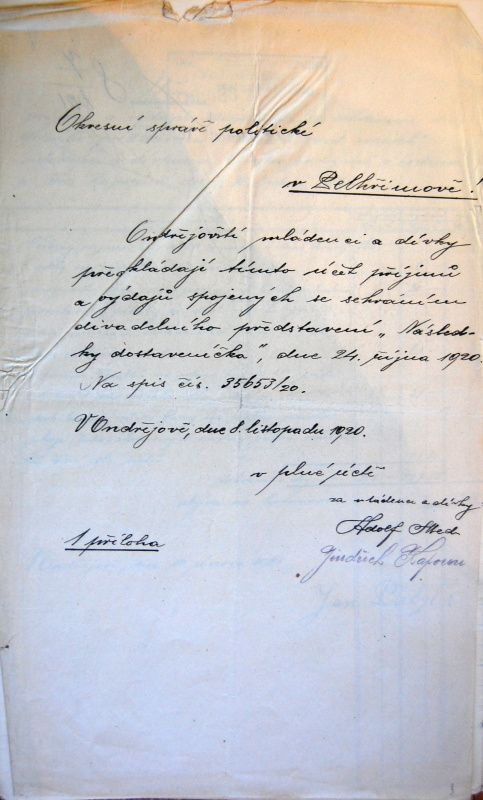 Okresní správě politické
v Pelhřimově!
Ondřejovští mládenci a dívky
předkládají tímto účet příjmů
a výdajů spojených se sehráním
divadelního představení „Násled-
ky dostaveníčka", dne 24. října 1920.
Na spis čís. 35653/20.
V Ondřejově, dne 8. listopadu 1920.
v plné úctě
za mládence a dívky
Adolf
1 příloha
Jindřich